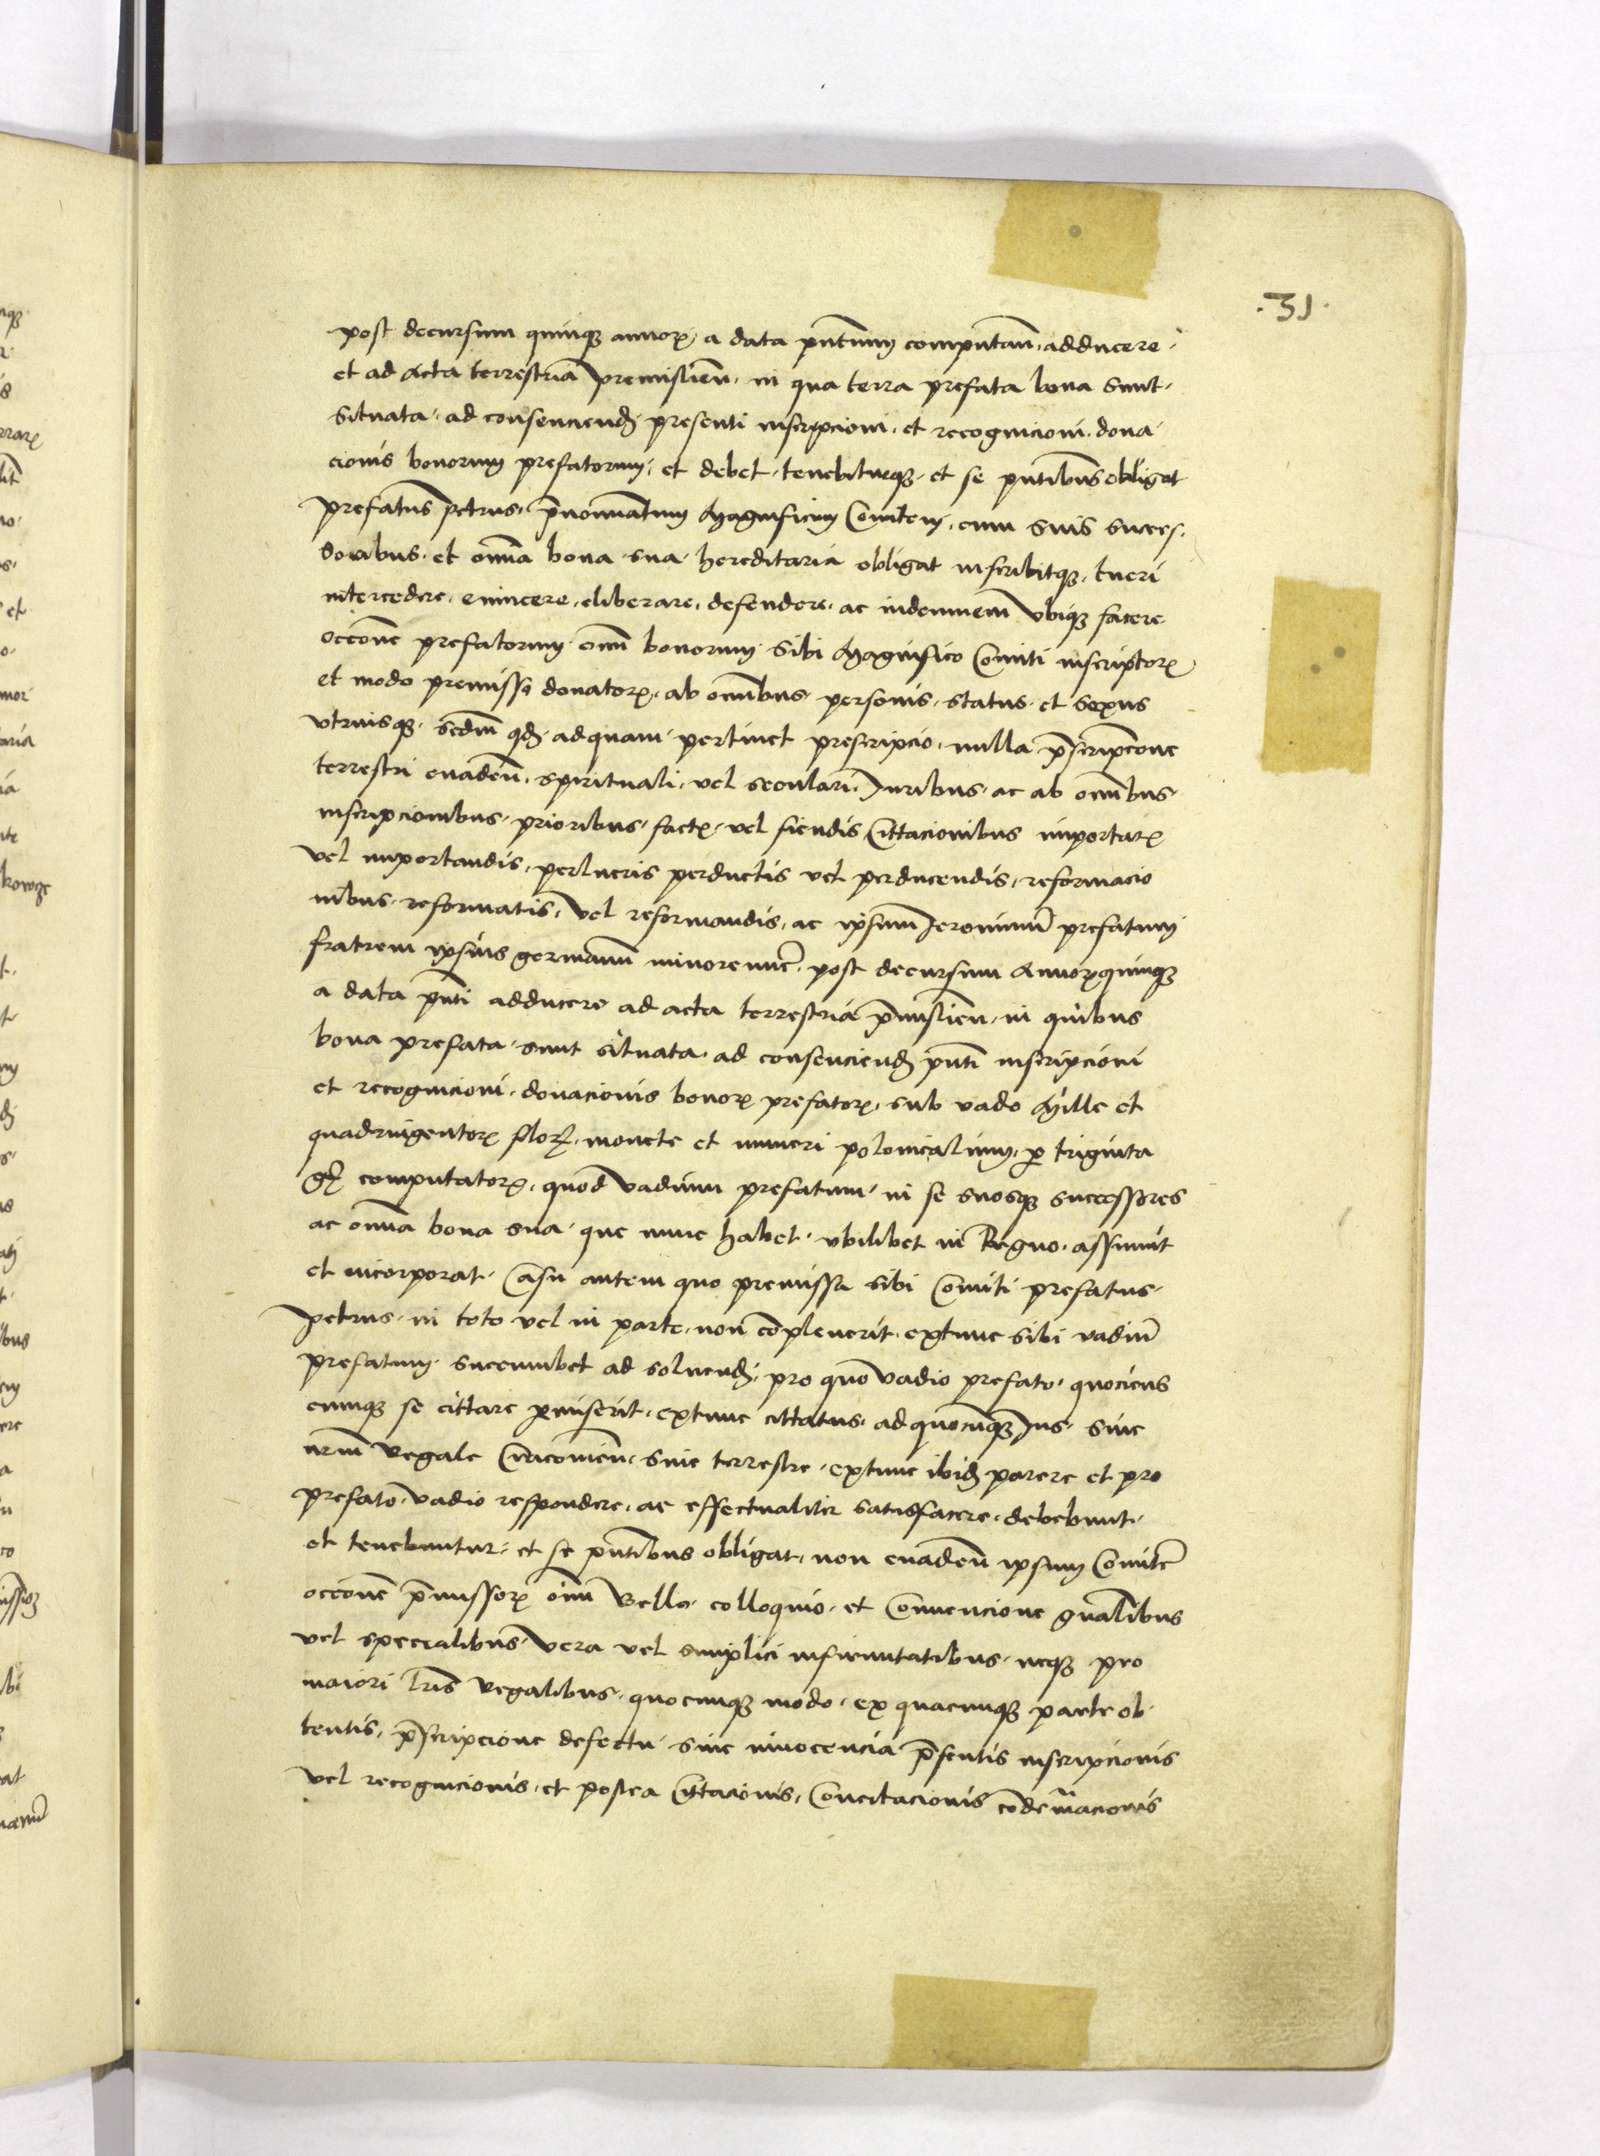 .31.
post decursum quinqȝ annorꝝ a data pñtium computañ adducere
et ad Acta terrestria premislieñ in qua terra prefata bona sunt
situata ad consenciendꝫ presenti inscripcioni et recognicioni dona
cionis bonorum prefatorum et debet tenebiturqȝ et se pñtibus obligat
prefatus petrus p̃nominatum Magnificum Comitem cum suis succes
soribus et om̃ia bona sua hereditaria obligat inscribitqȝ tueri
intercedere euincere eliberare defendere ac indemnem vbiqȝ facere
occõne prefatorum om̃i bonorum sibi Magnifico Comiti inscriptorꝝ
et modo premisso donatorꝝ ab om̃ibus personis status et sexus
vtriusqȝ sedm̃ qđ adquam pertinet prescripcio nulla p̃scripcione
terrestri euadeñ spirituali vel seculari Juribus ac ab om̃ibus
inscripcionibus prioribus factꝭ vel fiendis Cittacionibus importatꝭ
vel importandis perlucris perductis vel perducendis reformacio
nibus reformatis vel reformandis ac ipsum Jeronimũ prefatum
fratrem ipsius germanum minorenñe post decursum Annorꝝ quinqȝ
a data pñti adducere ad acta terrestria p̃mislieñ in quibus
bona prefata sunt situata ad consenciendꝫ pñti inscripcioni
et recognicioni donacionis bonorꝝ prefatorꝝ sub vadio Mille et
quadringentorꝝ florꝫ monete et numeri polonicalium ꝑ triginta
gꝝ computatorꝝ quod vadium prefatum in se suosqȝ successores
ac om̃ia bona sua que nunc habet vbilibet in Regno assumit
et incorporat Casu autem quo premissa sibi Comiti prefatus
petrus in toto vel in parte non cõpleuerit extunc sibi vadiũ
prefatum succumbet ad soluendꝫ pro quo vadio prefato quociens
cunqȝ se cittare ꝑmiserit extunc cittatus ad quodcunqȝ Jus siue
regale Cracouieñ siue terrestre extunc ibidꝫ parere et pro
prefato vadio respondere ac effectualiter satisfacere debebunt
et tenebuntur et se pñtibus obligat non euadeñ ipsum Comitẽ
occõne p̃missorꝝ om̃i Bello colloquio et Conuencione gñalibus
vel specialibus vera vel simplici infirmitatibus neqȝ pro
maiori lr̃is regalibus quocunqȝ modo ex quacunqȝ parte ob
tentis p̃scripcione defectu siue innocencia p̃sentis inscripcionis
vel recognicionis et postea Cittacionis Concitacionis cõdemnacionis